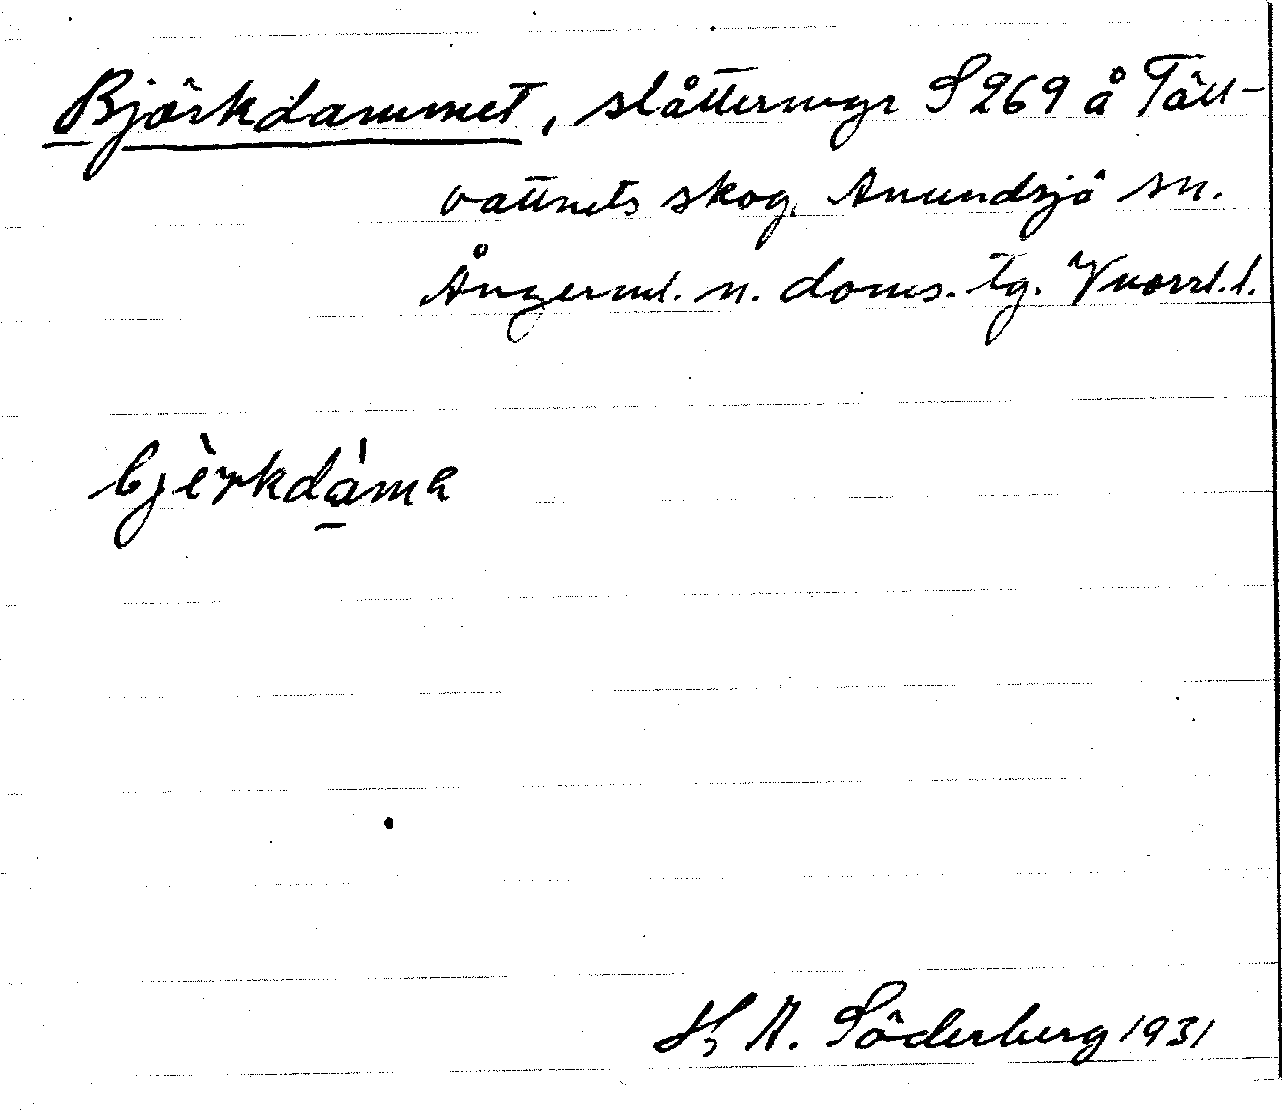 Björkdammet, slåttermyr S 269 å Tätt-
vattnets skog, Anundsjö sn.
Ångerml. n. doms. tg. Vnorrl. l.
bjèrkdáma
H A. Söderberg 1931